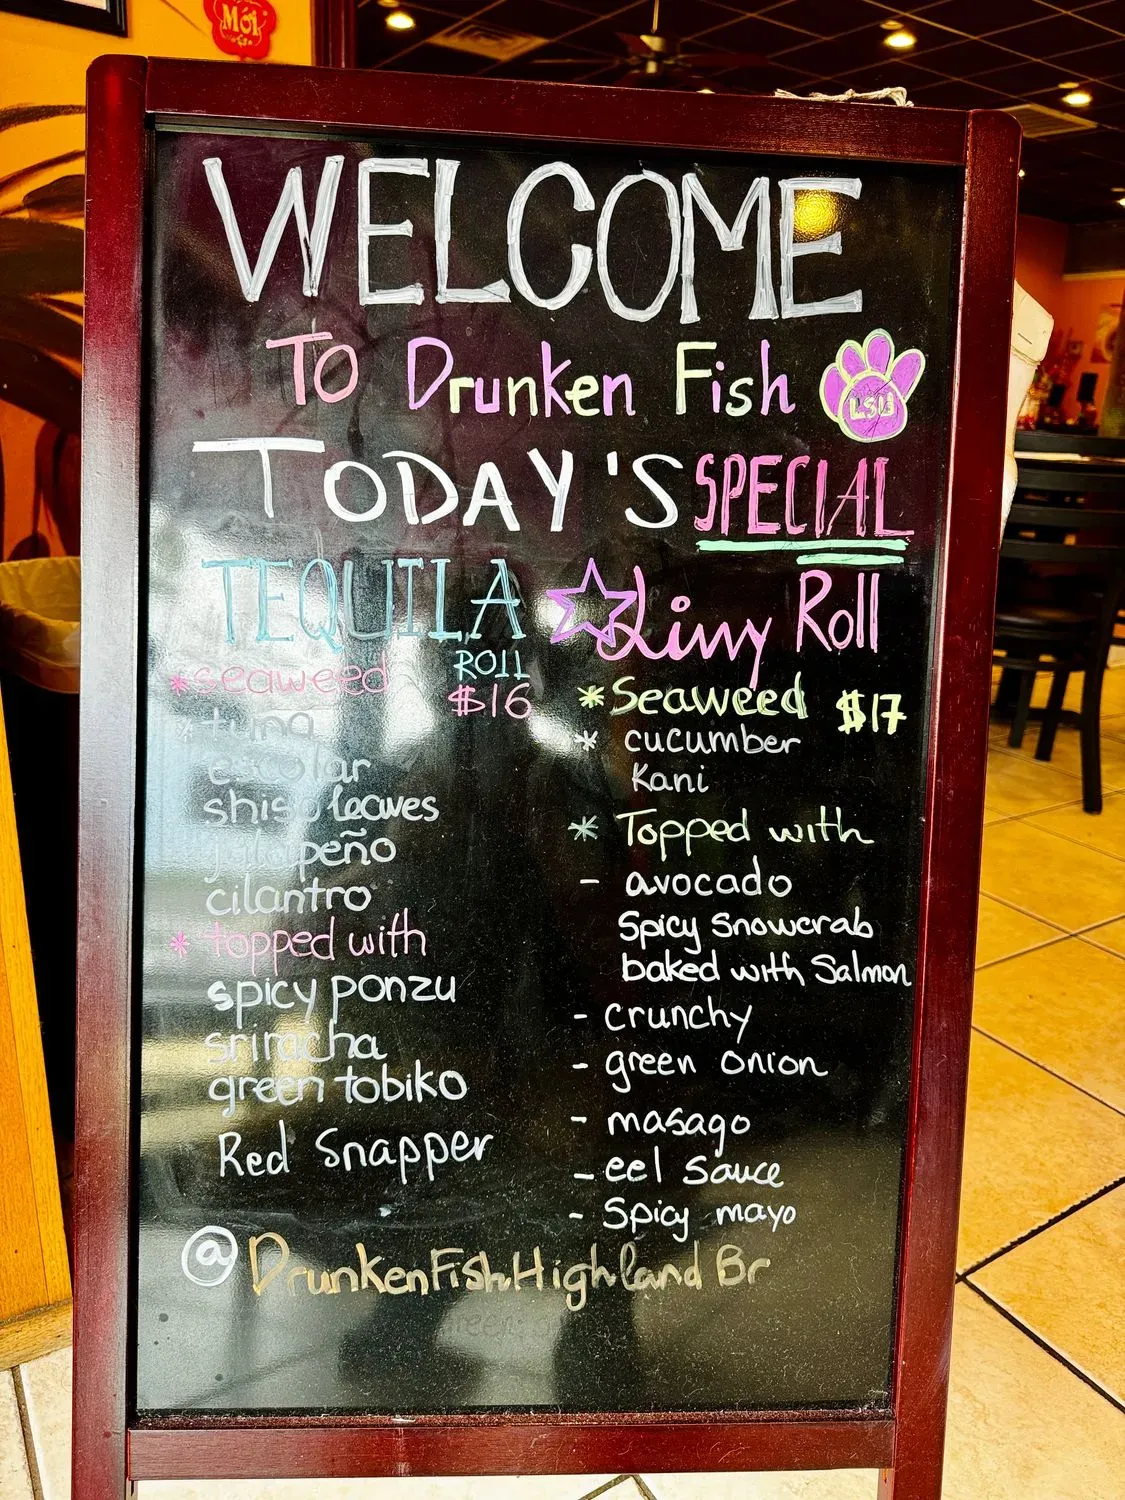 Mới
WELCOME
To Drunken Fish
LSU
TODAY'S SPECIAL
TEQUILA
ROll
$16
*seaweed
* tuna
escolar
shiso leaves
jalapeño
cilantro
* topped with
spicy ponzu
sriracha
green tobiko
Red Snapper
Livvy Roll
* Seaweed $17
* cucumber
Kani
* Topped with
- avocado
Spicy Snowcrab
baked with Salmon
- crunchy
- green onion
- masago
- eel Sauce
- Spicy mayo
@DrunkenFishHighland Br